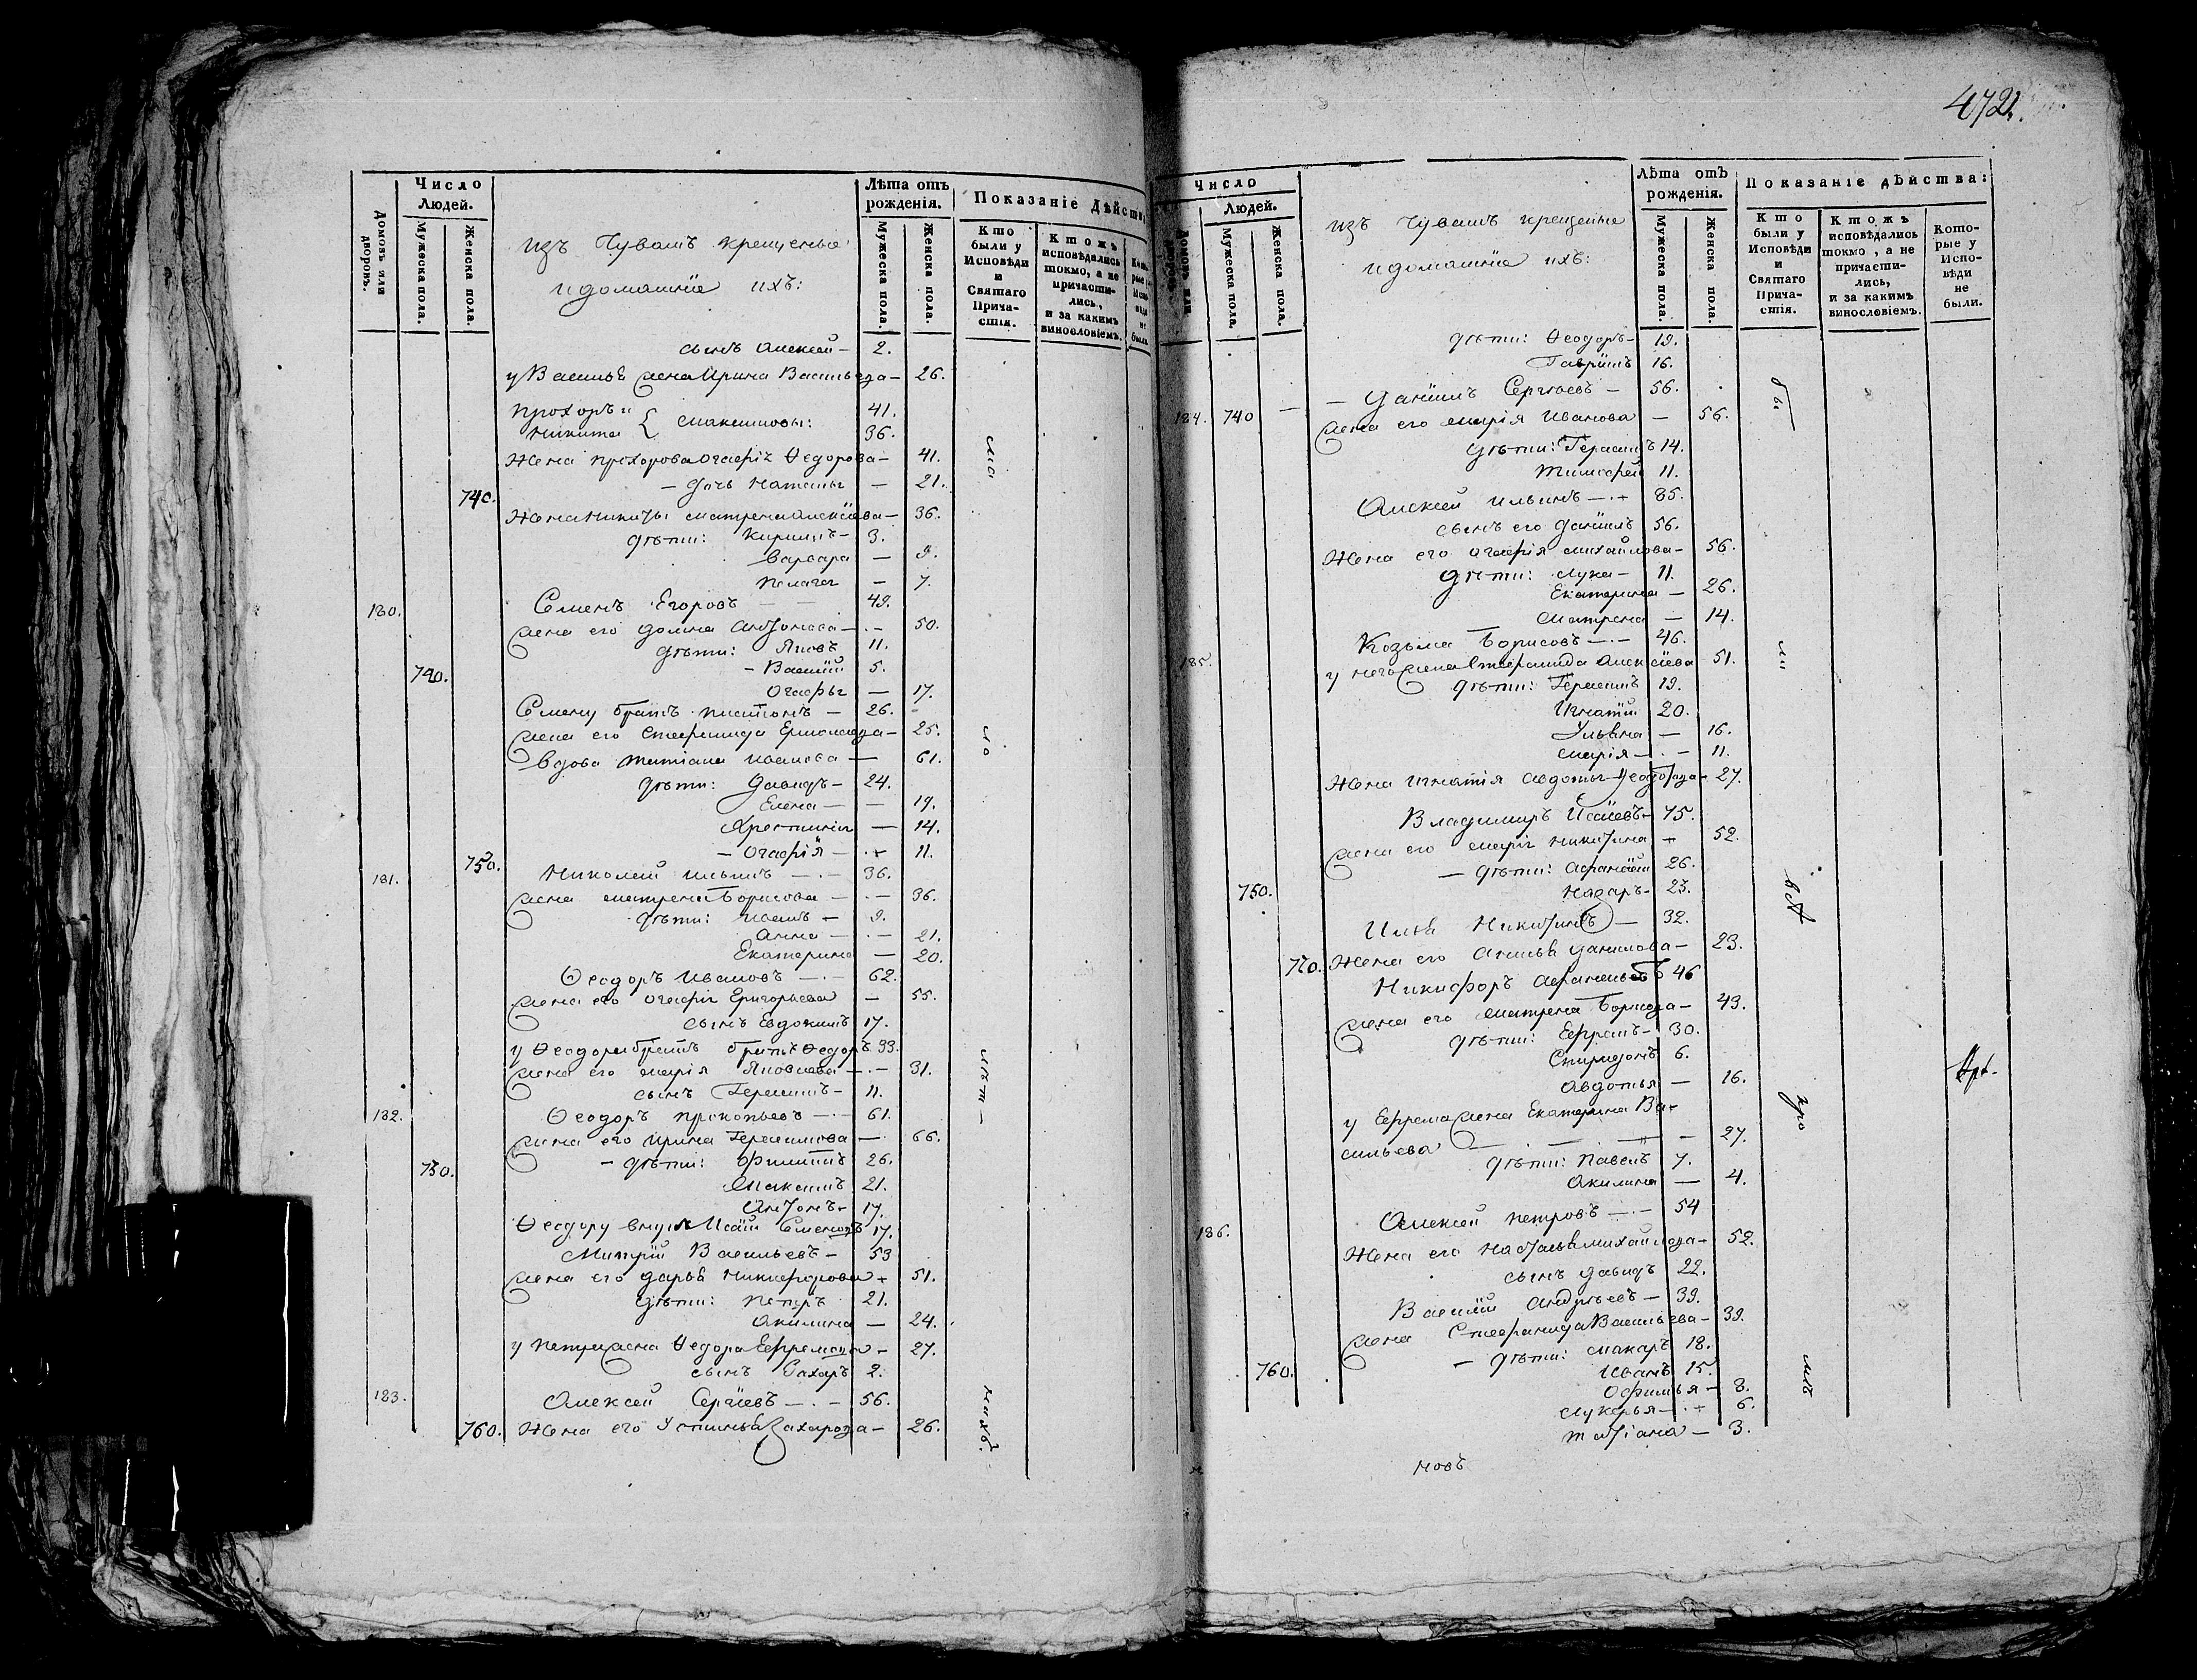 Число Людей.
Лѣта отъ рожденія.
Показаніе Дѣйств
Домовъ или дворовъ.
Мужеска пола.
Женска пола.
изъ Чувашъ крещеные
и домашніе ихъ:
Мужеска пола.
Женска пола.
Кто были у Исповѣди и Святаго Прича-стія.
Ктожъ исповѣдались токмо, а не причасти-лись, и за какимъ винословіемъ.
сынъ Алексей — 2.
у Василья жена Ирина Васильева — 26.
Прохоръ и 41.
Никита { Максимовы: 36.
Жена Прохорова Огафія Ѳедорова — 41.
— дочь Наталья — 21.
740. Жена Никиты Матрена Алексіева — 36.
дѣти: Кирилъ — 3.
Варвара — 9.
Пелагея — 7.
180. Семенъ Егоровъ — 49.
жена его Домна Антонова — 50.
дѣти: Яковъ 11.
740. — Василій 5.
Огафья — 17.
Семену братъ Платонъ — 26.
жена его Стефанида Ермолаева — 25.
вдова Татіана Иванова — 61.
дѣти: Давидъ — 24.
Елена — 19.
Христинія — 14.
750. — Огафія — 11.
181. Николай Ильинъ — 36.
жена Матрена Борисова — 36.
дѣти: Иванъ — 9.
Анна — 21.
Екатерина — 20.
Ѳеодоръ Ивановъ — 62.
жена его Огафія Григорьева — 55.
сынъ Евдокимъ 17.
у Ѳеодора братъ братъ Ѳедоръ 33.
жена его Марія Яковлева — 31.
сынъ Герасимъ — 11.
182. Ѳеодоръ Прокопьевъ — 61.
жена его Ирина Герасимова — 66.
750. — дѣти: Филиппъ 26.
Максимъ 21.
Антонъ — 17.
Ѳеодору внукъ Исаій Семеновъ 17.
Митрій Васильевъ — 53
жена его Дарья Никифорова — 51.
дѣти: Петръ 21.
Акилина — 24.
у Петра жена Ѳедора Ефремова — 27.
сынъ Захаръ 2.
183. Алексей Сергіевъ — 56.
760. Жена его Устинья Захарова — 26.
472.
Число Людей.
Лѣта отъ рожденія.
Показаніе дѣйства:
Домовъ или дворовъ.
Мужеска пола.
Женска пола.
изъ Чувашъ крещеные
и домашніе ихъ:
Мужеска пола.
Женска пола.
Кто были у Исповѣди и Святаго Прича-стія.
Ктожъ исповѣдались токмо, а не причасти-лись, и за какимъ винословіемъ.
Кото-рые у Испо-вѣди не были.
дѣти: Ѳеодоръ — 19.
Гаврилъ 16.
— Данилъ Сергѣевъ — 56.
184. 740 жена его Марія Иванова — 56.
дѣти: Герасимъ 14.
Тимофей 11.
Алексей Ильинъ — 85.
сынъ его Данилъ 56.
Жена его Огафія Михайлова — 56.
дѣти: Лука — 11.
Екатерина — 26.
Матрена — 14.
185. Козьма Борисовъ — 46.
у него жена Стефанида Алексіева 51.
дѣти: Герасимъ 19.
Игнатій 20.
Ульяна — 16.
Марія — 11.
Жена Игнатія Авдотья Ѳеодорова — 27.
Владимиръ Исаіевъ 75.
жена его Марія Никитина — 52.
— дѣти: Афанасій 26.
750. Назаръ — 23.
Илья Никитинъ — 32.
770. Жена его Анисья Данилова — 23.
Никифоръ Афанасьевъ 46
жена его Матрена Борисова — 43.
дѣти: Ефремъ — 30.
Спиридонъ 6.
Авдотья — 16.
у Ефрема жена Екатерина Ва-
сильева — 27.
дѣти: Павелъ 7.
Акилина — 4.
186. Алексей Петровъ — 54
Жена его Настасья Михайлова — 52.
сынъ Давидъ 22.
Василій Андрѣевъ — 39.
жена Стефанида Васильева — 39.
— дѣти: Макаръ 18.
760. Иванъ 15.
Офимья — 8.
Лукерья — 6.
Татіана — 3.
новъ